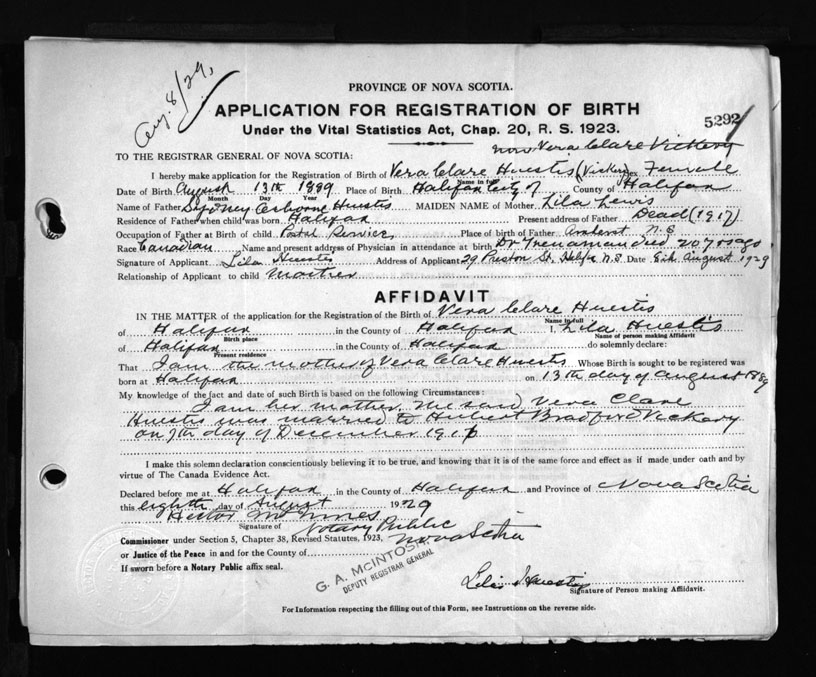 Aug. 8/29,
PROVINCE OF NOVA SCOTIA.
APPLICATION FOR REGISTRATION OF BIRTH
5292
Under the Vital Statistics Act, Chap. 20, R. S. 1923.
now Vera Clare Vickery
TO THE REGISTRAR GENERAL OF NOVA SCOTIA:
I hereby make application for the Registration of Birth of Vera Clare Huestis (Vickery) Sex Female
Name in full
Date of Birth August 13th 1889 Place of Birth Halifax City of County of Halifax
Month Day Year
Name of Father Sydney Osborne Huestis MAIDEN NAME of Mother Lila Lewis
Residence of Father when child was born Halifax Present address of Father Dead (1917)
Occupation of Father at Birth of child Postal Service Place of birth of Father Amherst N.S
Race Canadian Name and present address of Physician in attendance at birth Dr Trenaman died 20 yrs ago
Signature of Applicant Lila Huestis Address of Applicant 29 Preston St. Halfx N.S Date 8th August 1929
Relationship of Applicant to child Mother
AFFIDAVIT
IN THE MATTER of the application for the Registration of the Birth of Vera Clare Huestis
Name in full
of Halifax in the County of Halifax I, Lila Huestis
Birth place Name of person making Affidavit
of Halifax in the County of Halifax do solemnly declare:
Present residence
That I am the mother of Vera Clare Huestis Whose Birth is sought to be registered was
born at Halifax on 13th day of August 1889
My knowledge of the fact and date of such Birth is based on the following Circumstances:
I am her mother. The said Vera Clare
Huestis was married to Herbert Bradford Vickery
on 9th day of December 1916
I make this solemn declaration conscientiously believing it to be true, and knowing that it is of the same force and effect as if made under oath and by
virtue of The Canada Evidence Act.
Declared before me at Halifax in the County of Halifax and Province of Nova Scotia
this eighth day of August 1929
Hector McInnes
Signature of Notary Public
Commissioner under Section 5, Chapter 38, Revised Statutes, 1923, Nova Scotia
or Justice of the Peace in and for the County of
If sworn before a Notary Public affix seal.
G. A. McINTOSH
DEPUTY REGISTRAR GENERAL
Lila Huestis
Signature of Person making Affidavit.
For Information respecting the filling out of this Form, see Instructions on the reverse side.